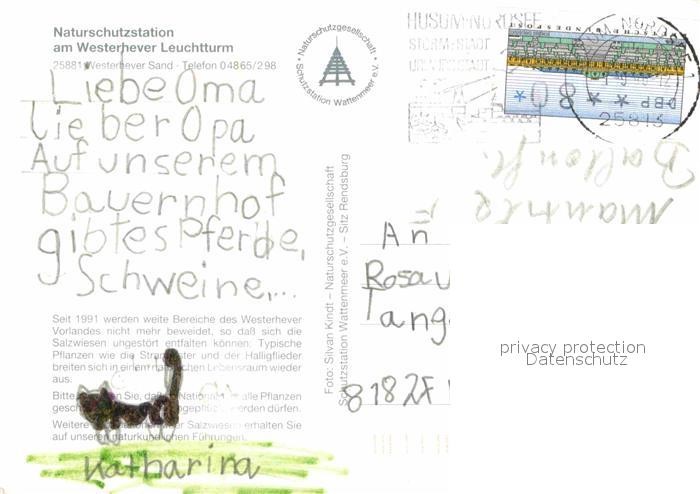 Naturschutzstation
am Westerhever Leuchtturm
25881 Westerhever Sand · Telefon 04865/298
Liebe Oma
lieber Opa
Auf unserem
Bauernhof
gibt es Pferde,
Schweine,...
Seit 1991 werden weite Bereiche des Westerhever
Vorlandes nicht mehr beweidet, so daß sich die
Salzwiesen ungestört entfalten können. Typische
Pflanzen wie die Strandaster und der Halligflieder
breiten sich in einem natürlichen Lebensraum wieder
aus.
Bitte Sie, daß Nationalpark alle Pflanzen
geschützt werden dürfen.
Weitere Salzwiesen erhalten Sie
auf unseren naturkundlichen Führungen.
Katharina
Foto: Silvan Kindt – Naturschutzgesellschaft
Schutzstation Wattenmeer e.V. – Sitz Rendsburg
• Naturschutzgesellschaft •
Schutzstation Wattenmeer e.V.
HUSUM-NORDSEE
STORM-STADT
URLAUBSSTADT
DEUTSCHE BUNDESPOST
DBP * * 80 *
25813
An
Rosau
Tang
8182
privacy protection
Datenschutz